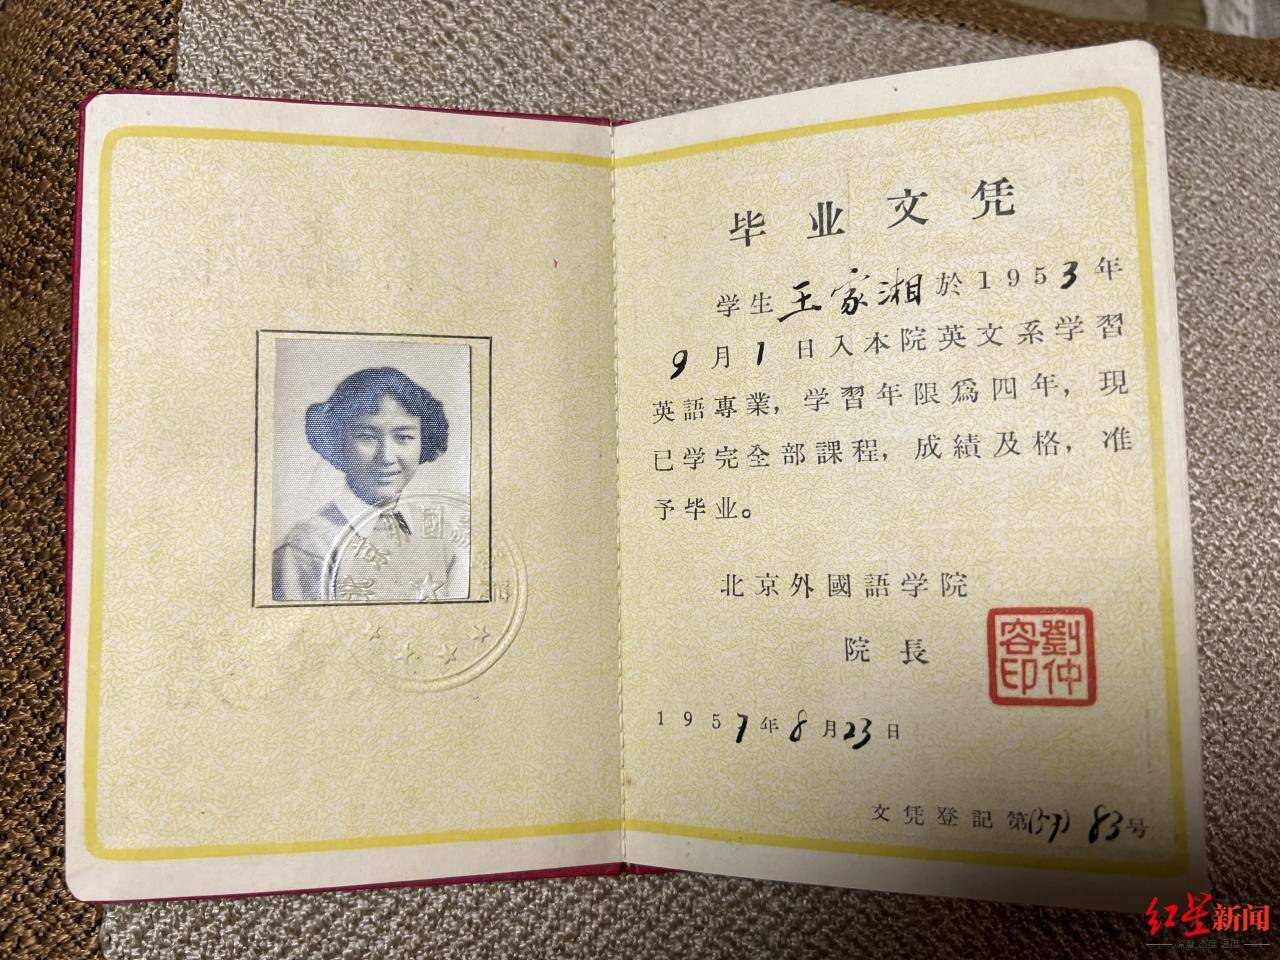 毕业文凭
学生王家湘於1953年
9月1日入本院英文系学習
英語專業，学習年限爲四年，現
已学完全部課程，成績及格，准
予毕业。
北京外國語学院
院長
劉仲
容印
1957年8月23日
文凭登記第(57)83号
红星新闻
深度 态度 温度